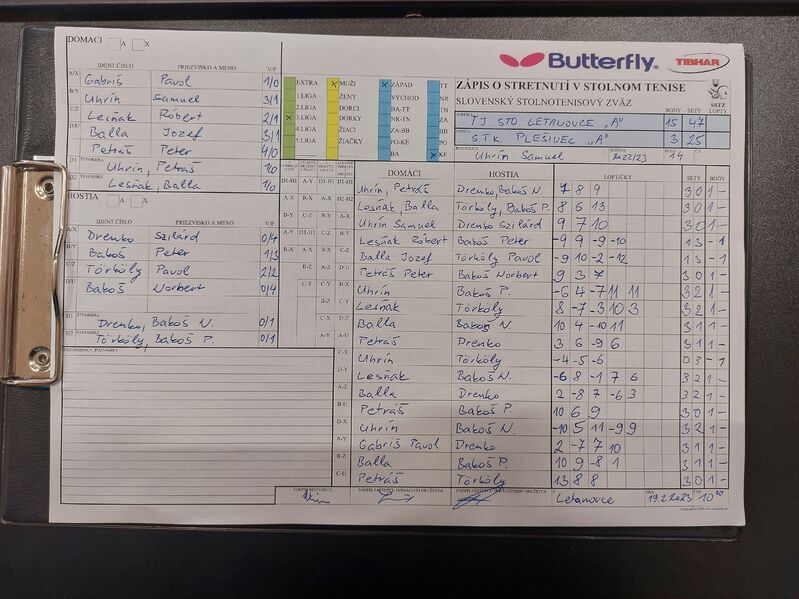 DOMÁCI A X
IDENT.ČÍSLO PRIEZVISKO A MENO V/P
A/X Gabriš Pavol 1/0
B/Y Uhrín Samuel 3/1
C/Z Lesňak Róbert 2/1
Balla Jozef 3/1
Petráš Peter 4/0
D1 ŠTVORHRA Uhrín, Petráš 1/0
D2 ŠTVORHRA Lesňak, Balla 1/0
HOSTIA A X
IDENT.ČÍSLO PRIEZVISKO A MENO V/P
A/X Drenko Szilárd 0/4
B/Y Bakoš Peter 1/3
C/Z Törköly Pavol 2/2
D/U Bakoš Norbert 0/4
ŠTVORHRA Drenko, Bakoš N. 0/1
ŠTVORHRA Törköly, Bakoš P. 0/1
PRIPOMIENKY, POZNÁMKY
Butterfly TIBHAR
EXTRA x MUŽI x ZÁPAD TT
1.LIGA ŽENY VÝCHOD NR
2.LIGA DORCI BA-TT
x 3.LIGA DORKY TN-NR
4.LIGA ŽIACI ZA-BB
5.LIGA ŽIAČKY PO-KE PO
BA x KE
ZÁPIS O STRETNUTÍ V STOLNOM TENISE
SLOVENSKÝ STOLNOTENISOVÝ ZVÄZ
BODY SETY LOPTY SSTZ
TJ STO LETANOVCE "A" 15 47
STK PLEŠIVEC "A" 3 25
Uhrín Samuel 2022/23 14
DOMÁCI HOSTIA LOPTIČKY SETY BODY
Uhrín, Petráš Drenko, Bakoš N. 7 8 9 3 0 1 -
Lesňak, Balla Törköly, Bakoš P. 8 6 13 3 0 1 -
Uhrín Samuel Drenko Szilárd 9 7 10 3 0 1 -
Lesňak Róbert Bakoš Peter -9 9 -9 -10 1 3 - 1
Balla Jozef Törköly Pavol -9 10 -2 -12 1 3 - 1
Petráš Peter Bakoš Norbert 9 3 7 3 0 1 -
Uhrín Bakoš P. -6 4 -7 11 11 3 2 1 -
Lesňak Törköly 8 -7 -3 10 3 3 2 1 -
Balla Bakoš N 10 4 -10 11 3 1 1 -
Petráš Drenko 3 6 -9 6 3 1 1 -
Uhrín Törköly -4 -5 -6 0 3 - 1
Lesňak Bakoš N. -6 8 -1 7 6 3 2 1 -
Balla Drenko 2 -8 7 -6 3 3 2 1 -
Petráš Bakoš P. 10 6 9 3 0 1 -
Uhrín Bakoš N -10 5 11 -9 9 3 2 1 -
Gabriš Pavol Drenko 2 -7 7 10 3 1 1 -
Balla Bakoš P. 10 9 -8 1 3 1 1 -
Petráš Törköly 13 8 8 3 0 1 -
PODPIS ROZHODCU PODPIS ZÁSTUPCU DOMÁCEHO DRUŽSTVA V Letanovce DŇA 19.2.2023 ČAS 10 00